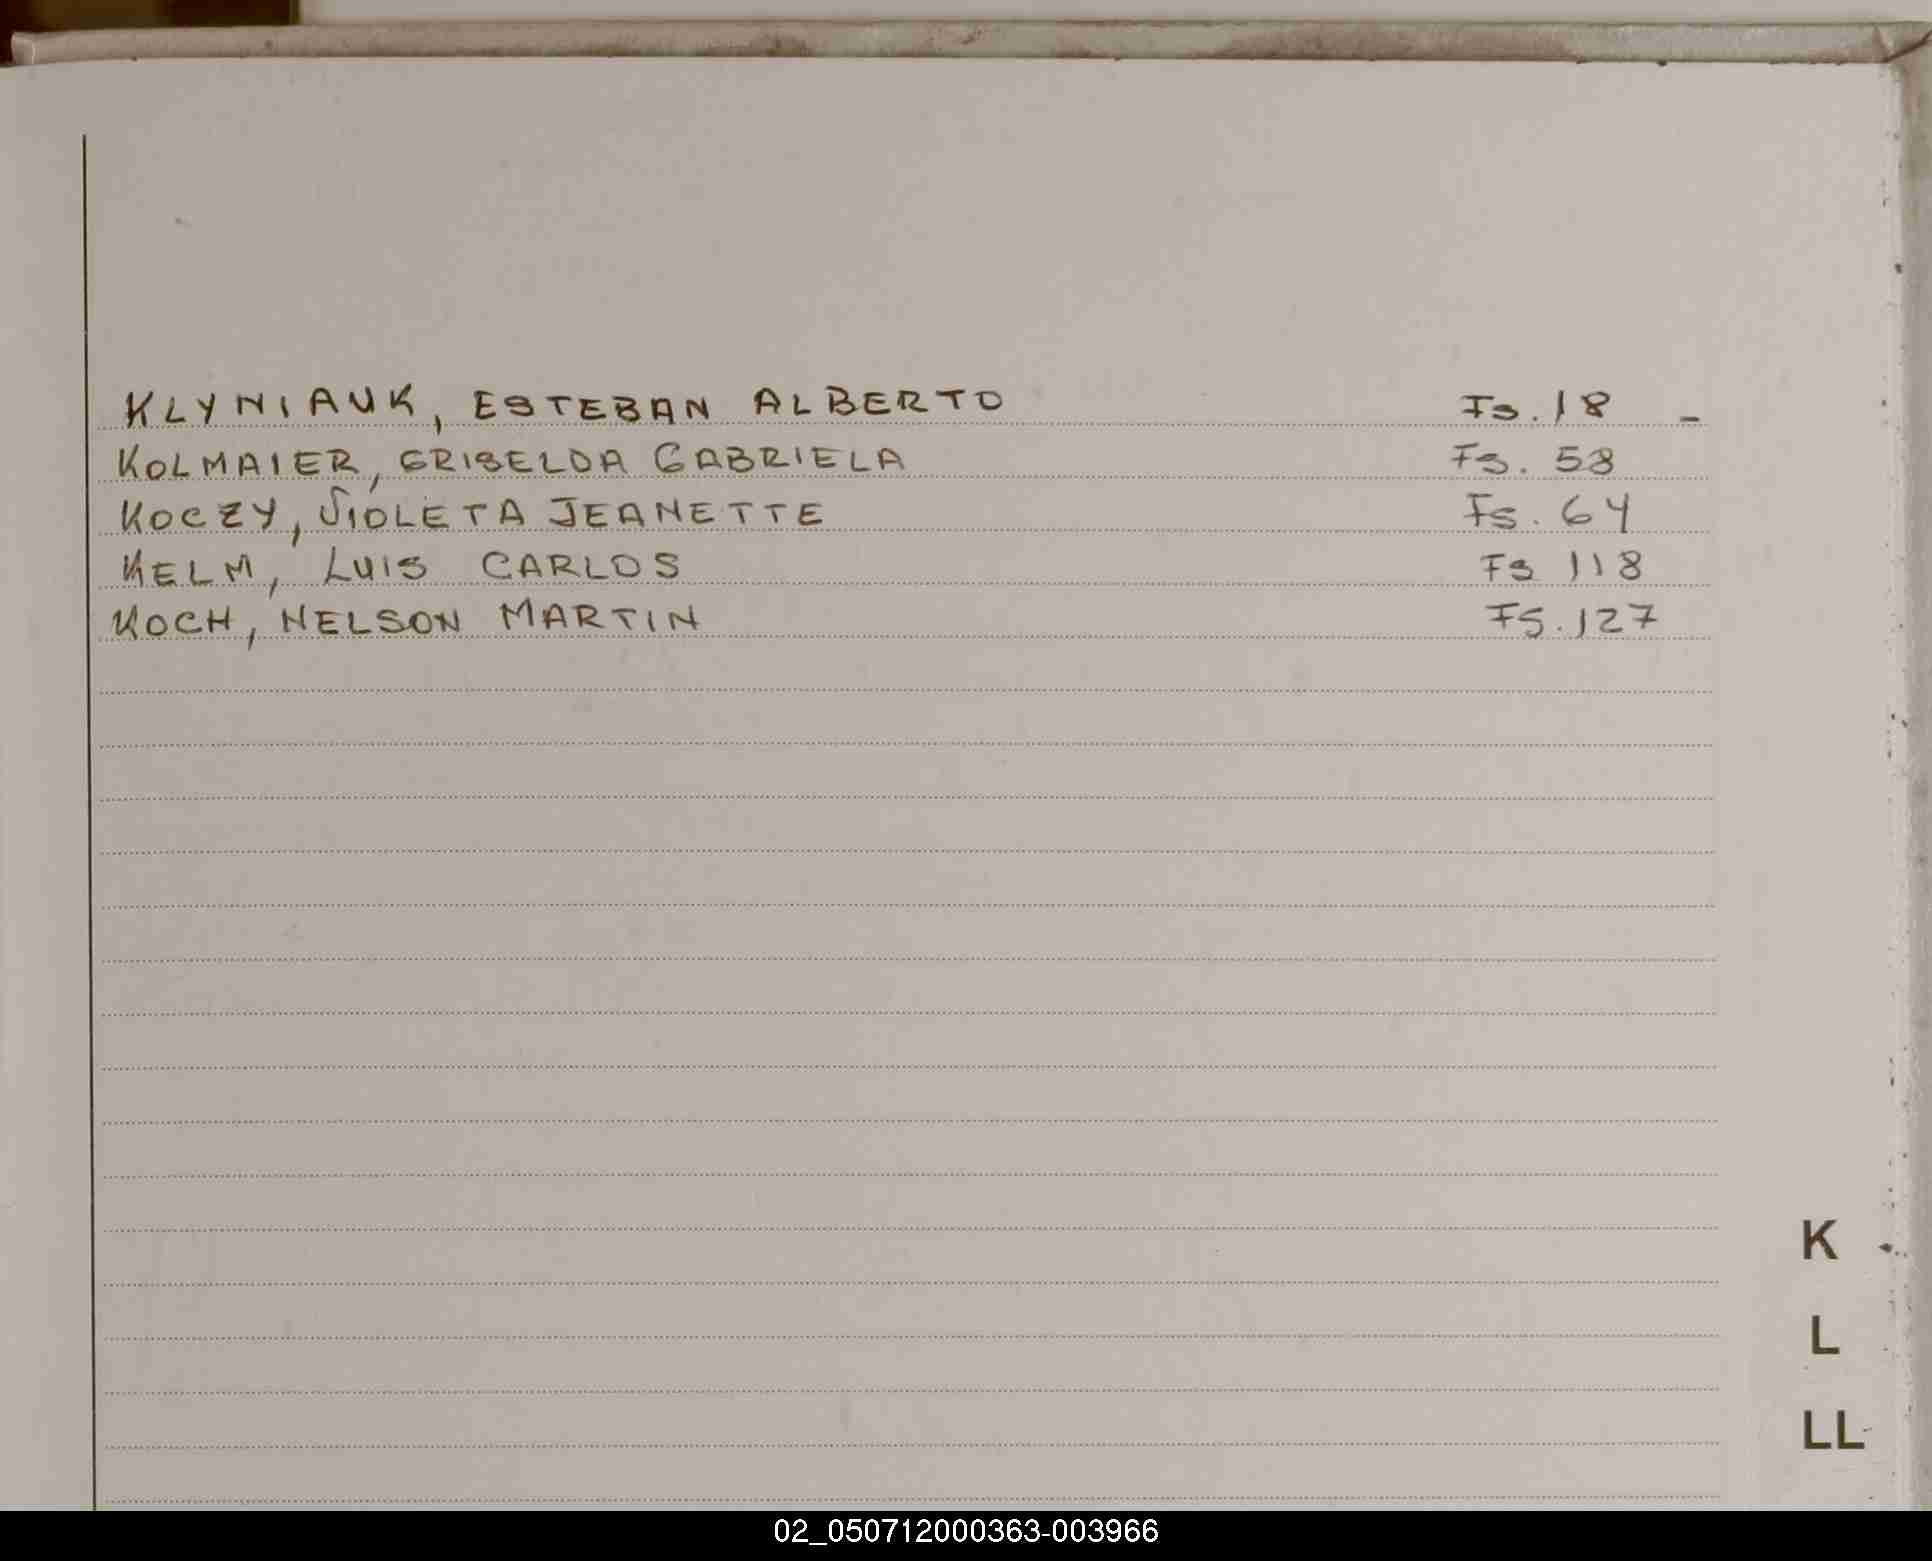 KLYNIAUK, ESTEBAN ALBERTO Fs. 18 -
KOLMAIER, GRISELDA GABRIELA Fs. 58
KOCZY, VIOLETA JEANETTE Fs. 64
KELM, LUIS CARLOS Fs 118
KOCH, NELSON MARTIN FS. 127
K
L
LL
02_050712000363-003966